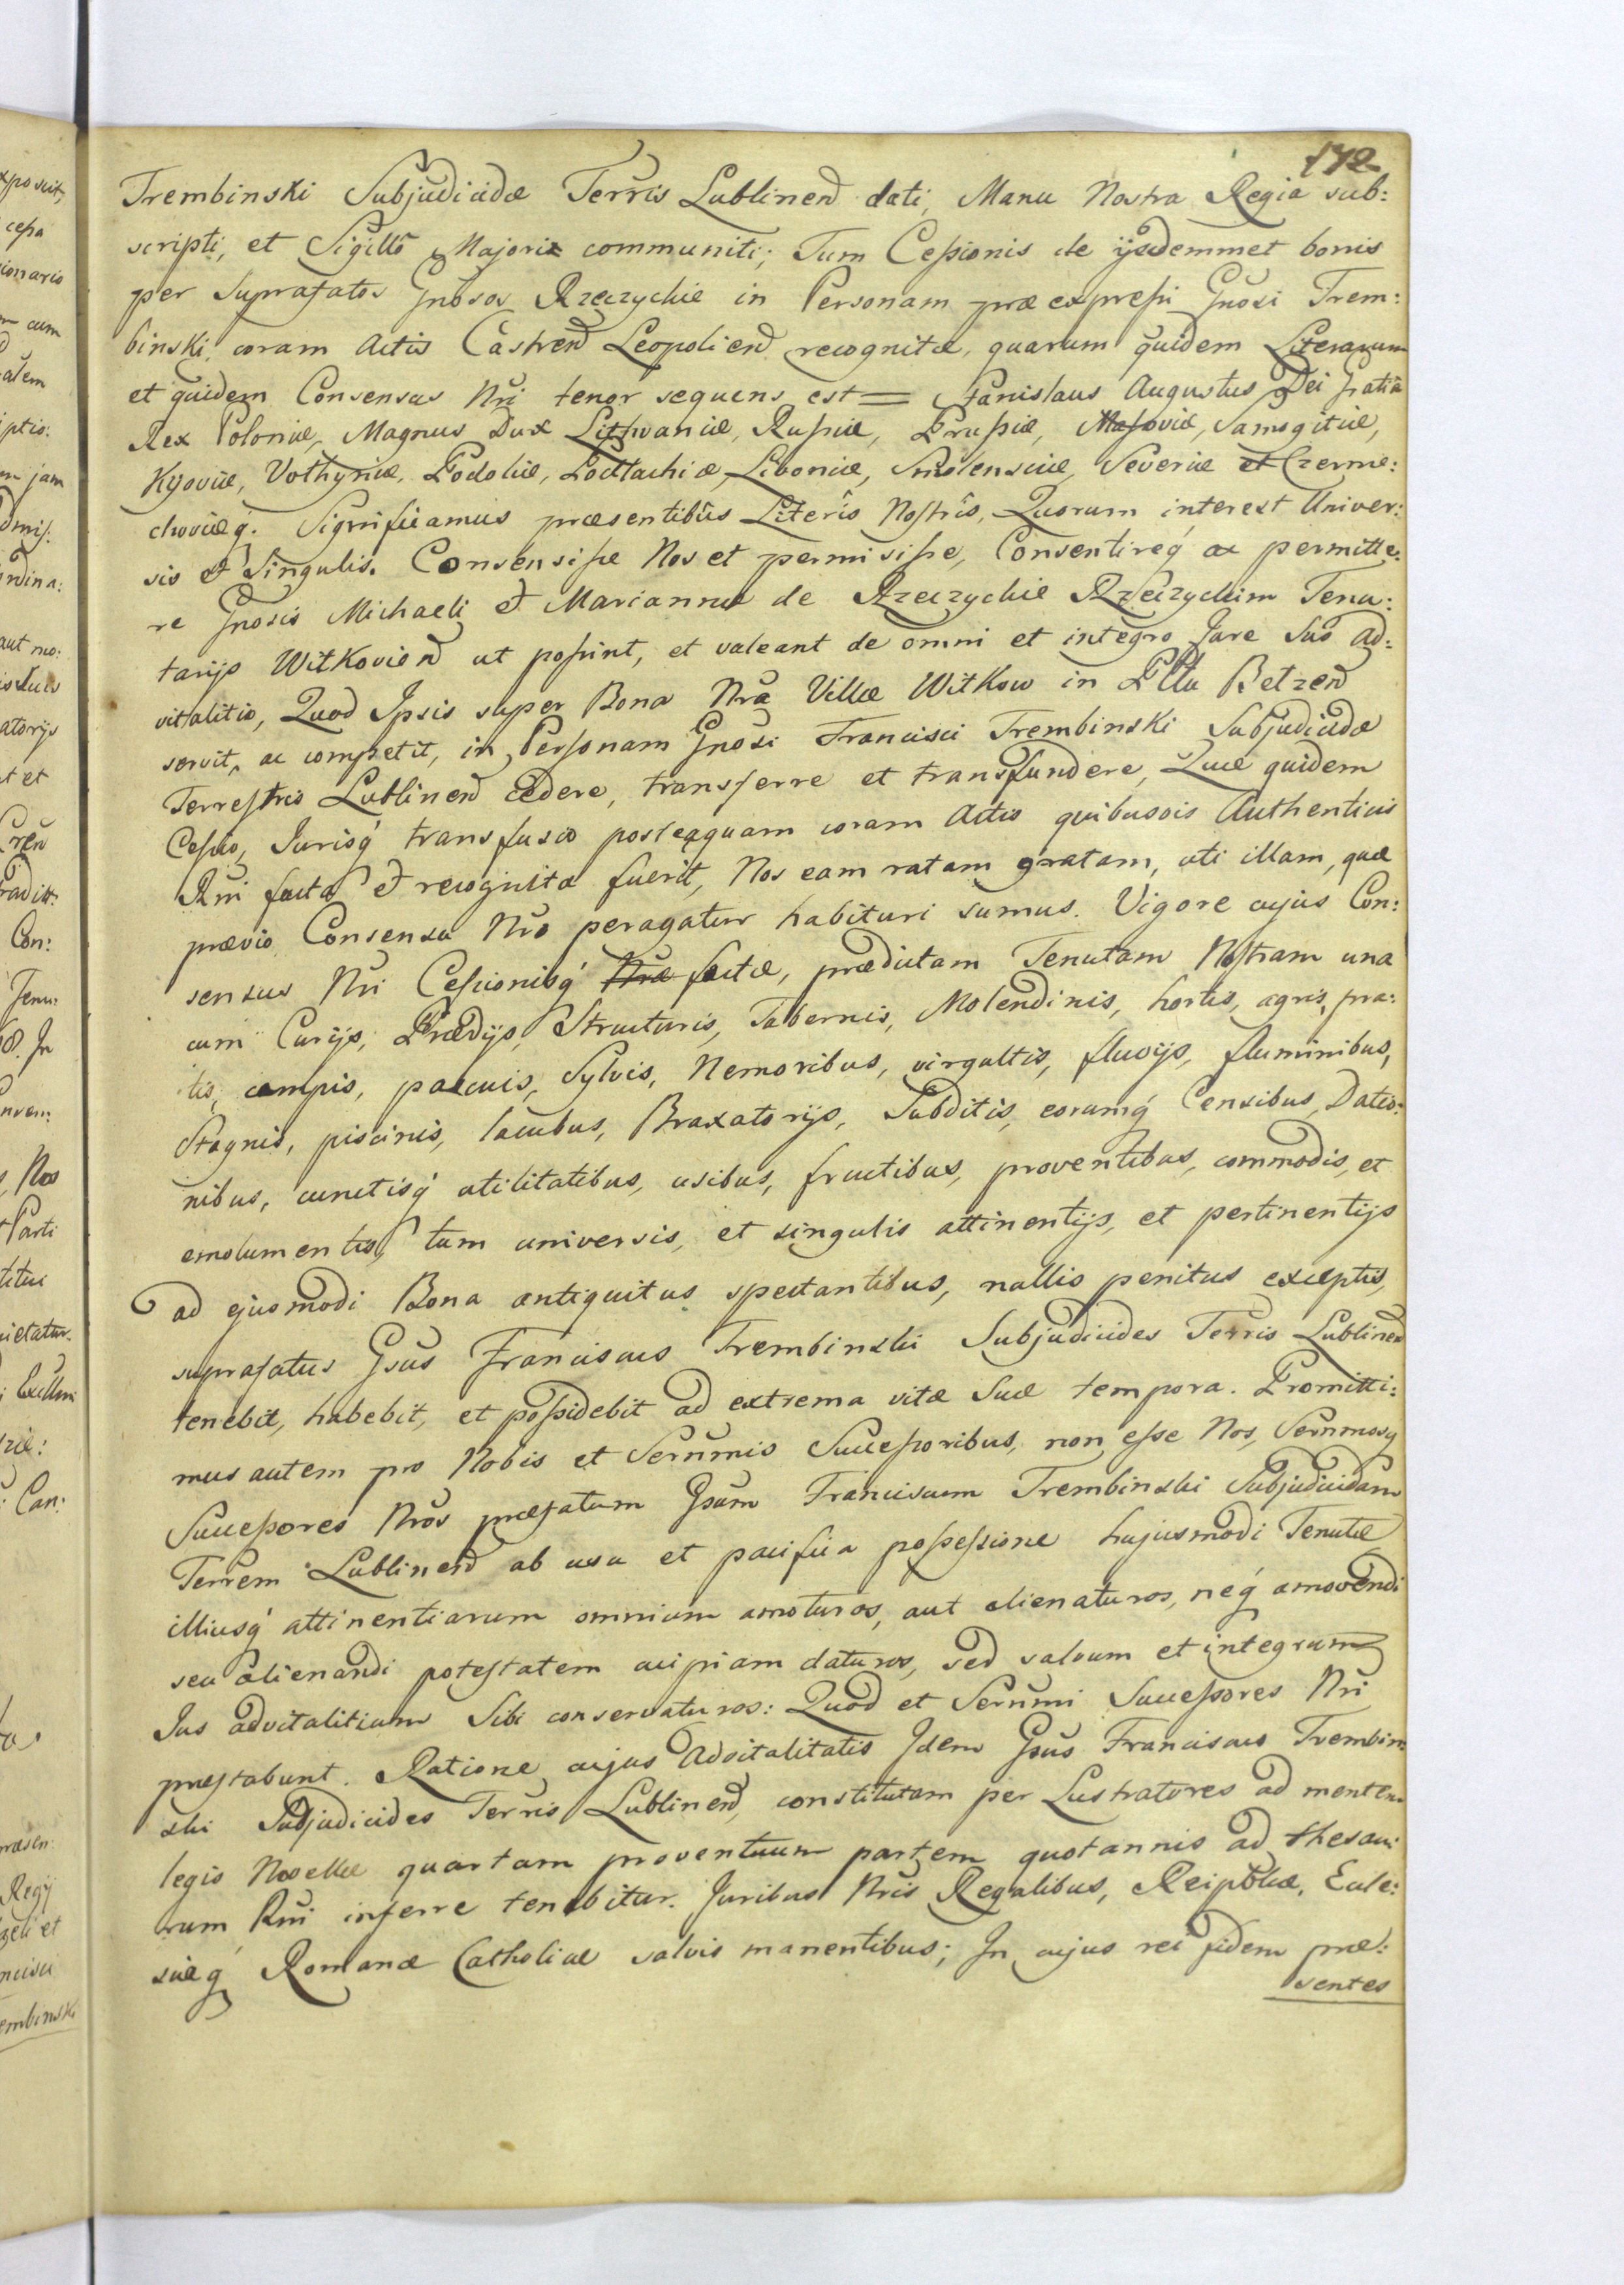 172
Trembinski Subjudicidæ Terris Lublinen̄ dati, Manu Nostra Regia sub:
scripti, et Sigillô Majoris communiti; Tum Ceßionis de ijsdemmet bonis
per Suprafatos Gn̄osos Rzeczyckie in Personam præ expreßi Gn̄osi Trem:
binski, coram Actis Castren̄ Leopolien̄ recognitæ, quarum quidem Literarum
et quidem Consensus Nr̄i tenor sequens est = Stanislaus Augustus Dei Gratiâ
Rex Poloniæ, Magnus Dux Lithvaniæ, Rußiæ, Prußiæ, Masoviæ, Samogitiæ,
Kyoviæ, Volhyniæ, Podoliæ, Podlachiæ, Livoniæ, Smolensciæ, Severiæ et Czerne:
choviæq́. Significamus præsentibûs Literîs Nostrîs, Quorum interest Univer:
sis et Singulis. Consensiße Nos et permisiße, Consentireq́ ac permitte:
re Gn̄osis Michaeli et Mariannæ de Rzeczyckie Rzeczyckim Tenu:
tarijs Witkovien̄ ut poßint, et valeant de omni et integro Jure Suo ad:
vitalitio, Quod Ipsis super Bona Nr̄a Villæ Witkow in Pltu Betzen̄
servit, ac competit, in Personam Gn̄osi Francisci Trembinski Subjudicidæ
Terrestris Lublinen̄ cedere, transferre et transfundere, Quæ quidem
Ceßio, Jurisq́ transfusio posteaquam coram Actis quibusvis Authenticis
Rn̄i facta et recognita fuerit, Nos eam ratam gratam, uti illam, quæ
prævio Consensu Nr̄o peragatur habituri sumus. Vigore cujus Con:
sensus Nr̄i Ceßionisq́ Nræ factæ, prædictam Tenutam Nostram una
cum Curijs, Prædijs, Structuris, Tabernis, Molendinis, hortis, agris, pra:
tis, campis, pascuis, Sylvis, Nemoribus, virgultis, fluvijs, fluminibus,
Stagnis, piscinis, lacubus, Braxatorijs, Subditis, eorumq́ Censibus, Datio:
nibus, cunctisq́ utilitatibus, usibus, fructibus, proventibus, commodis, et
emolumentis, tum universis, et singulis attinentijs, et pertinentijs
ad ejusmodi Bona antiquitus spectantibus, nullis penitus exceptis,
suprafatus Gsus Franciscus Trembinski Subjudicides Terris Lublinen̄
tenebit, habebit, et poßidebit ad extrema vitæ Suæ tempora. Promitti:
mus autem pro Nobis et Serenmis Succeßoribus, non eße Nos, Sernmosq
Succeßores Nr̄os præfatum Gsum Franciscum Trembinski Subjudicidam
Terrem Lublinen̄ ab usu et pacifica poßeßione hujusmodi Tenutæ
illiusq́ attinentiarum omnium amoturos, aut alienaturos, neq́ amovendi
seu alienandi potestatem cuipiam daturos, sed salvum et integrum
Jus advitalitium Sibi conservaturos: Quod et Sernmi Succeßores Nr̄i
præstabunt. Ratione cujus Advitalitatis Idem Gsus Franciscus Trembin:
ski Subjudicides Terris Lublinen̄ constitutam per Lustratores ad mentem
legis Novellæ quartam proventuum partem quotannis ad thesau:
rum Rn̄i inferre tenebitur. Juribus Nr̄is Regalibus, Reipblcæ, Eccle:
siæq́ Romanæ Catholicæ salvis manentibus; In cujus rei fidem præ:
sentes